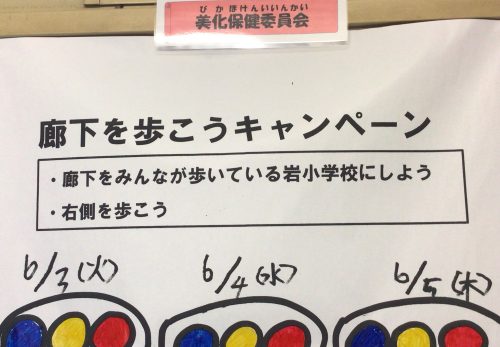 びかほけんいいんかい
美化保健委員会
廊下を歩こうキャンペーン
・廊下をみんなが歩いている岩小学校にしよう
・右側を歩こう
6/3(火) 6/4(水) 6/5(木)